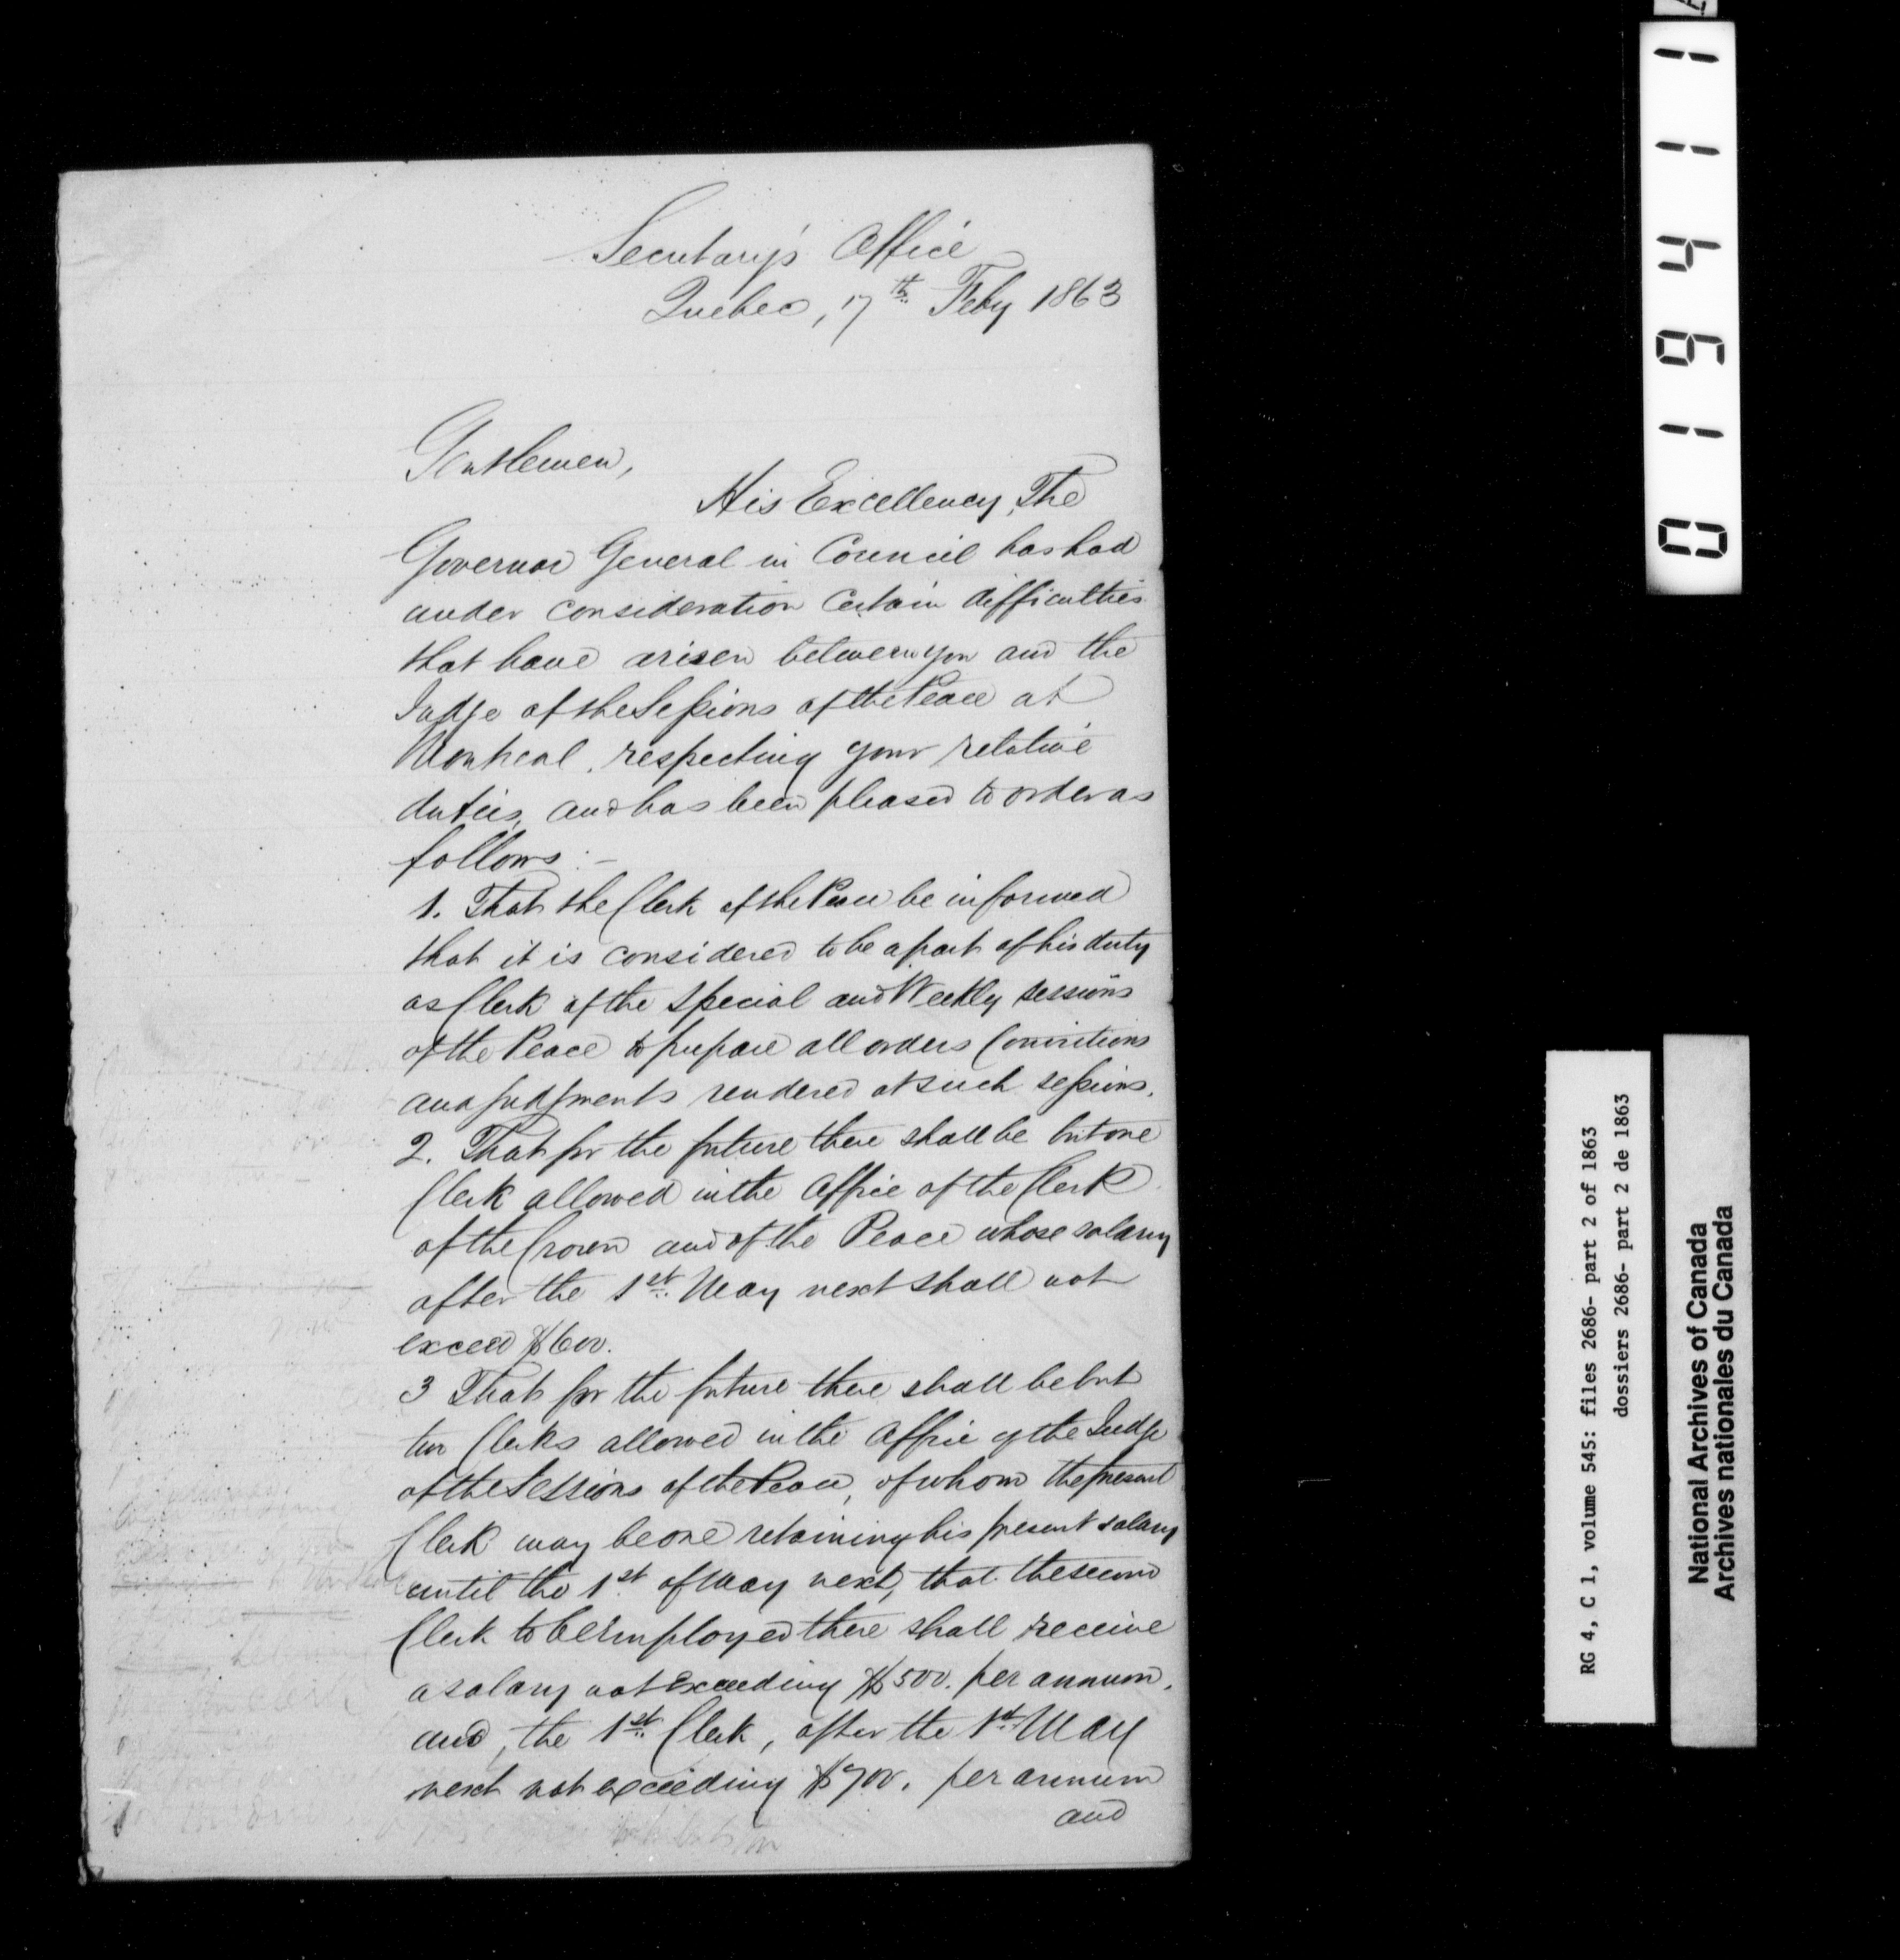 Secretary's Office
Quebec, 17th Feby 1863
Gentlemen,
His Excellency, The
Governor General in Council has had
under consideration Certain difficulties
that have arisen between you and the
Judge of the Sessions of the Peace at
Montreal, respecting your relative
duties, and has been pleased to order as
follows:-
1. That the Clerk of the Peace be informed
that it is considered to be a part of his duty
as Clerk of the Special and Weekly sessions
of the Peace to prepare all orders Convictions
and Judgments rendered at such sessions.
2. That for the future there shall be but one
Clerk allowed in the Office of the Clerk
of the Crown and of the Peace whose salary
after the 1st May next shall not
exceed $600.
3 That for the future there shall be but
two Clerks allowed in the Office of the Judge
of the Sessions of the Peace, of whom the present
Clerk may be one retaining his present salary
until the 1st of May next, that the second
Clerk to be employed there shall receive
a salary not Exceeding $500. per annum,
and, the 1st Clerk, after the 1st May
next not exceeding $700. per annum
and
019411
RG 4, C 1, volume 545: files 2686- part 2 of 1863
dossiers 2686- part 2 de 1863
National Archives of Canada
Archives nationales du Canada